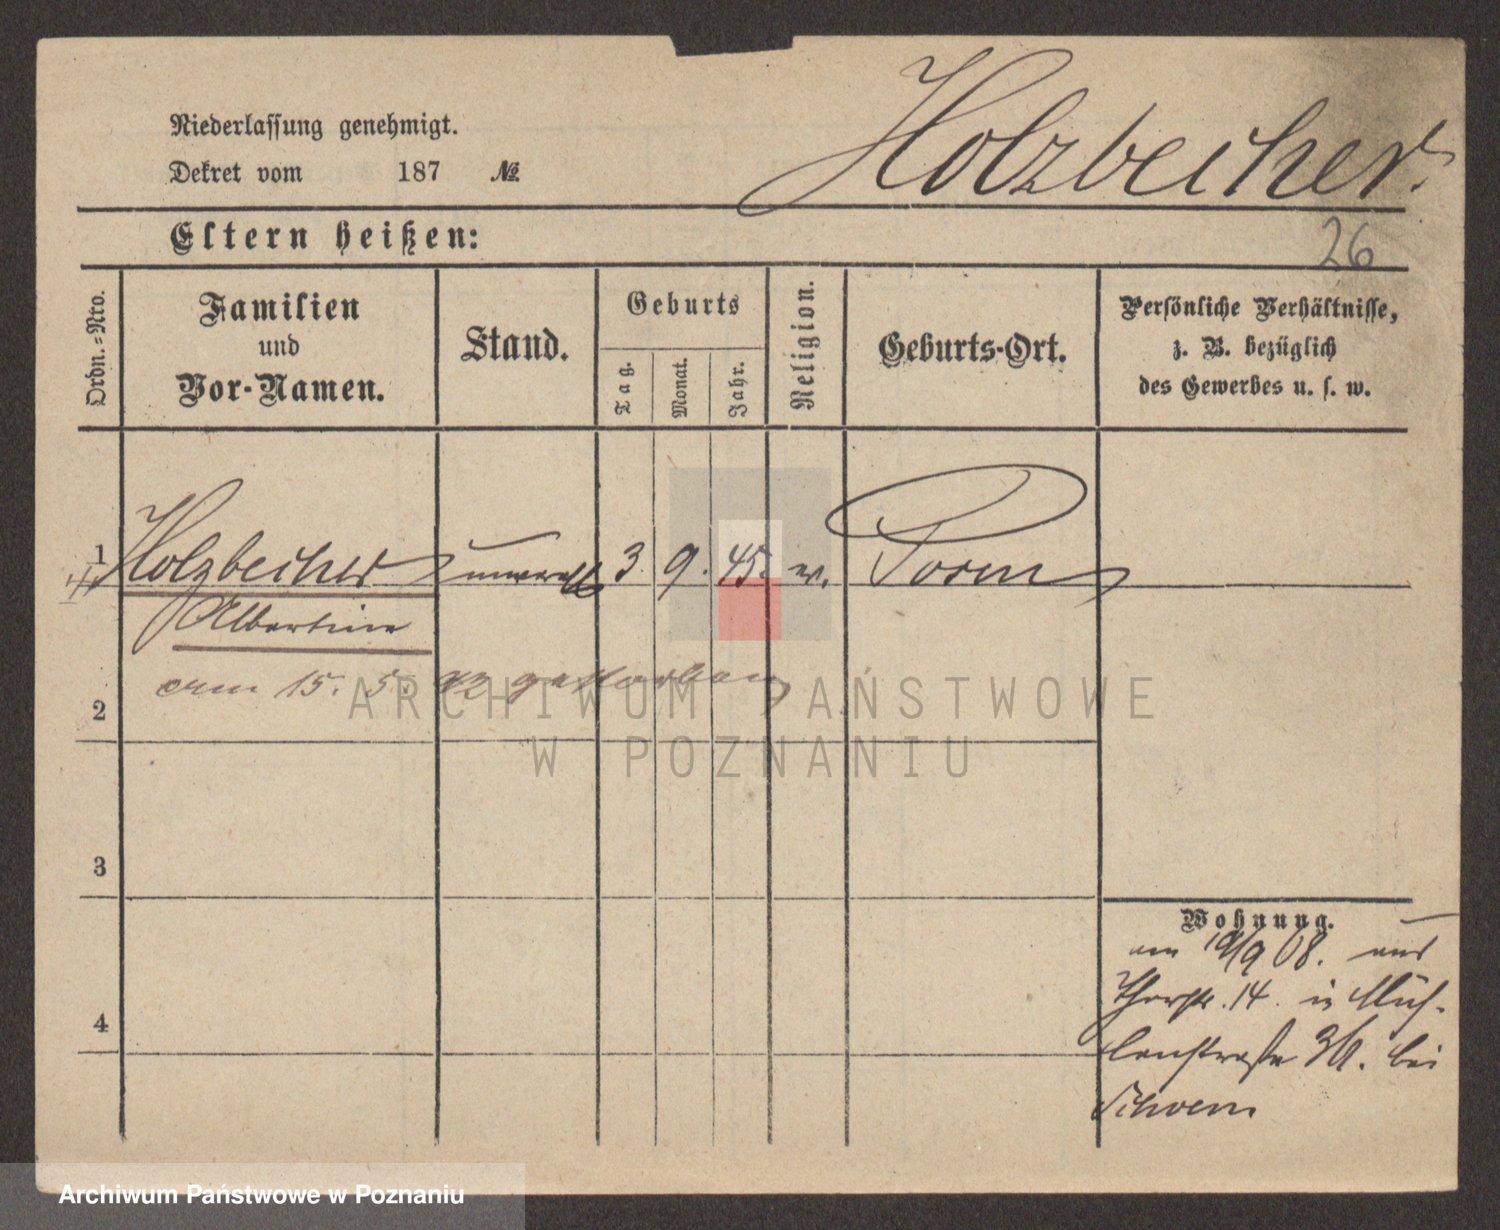 Holzbecher.
Niederlassung genehmigt.
Dekret vom 187 №
Eltern heißen:
26
Ordn.-Nro.
Familien
und
Vor-Namen.
Stand.
Geburts
Tag.
Monat.
Jahr.
Religion.
Geburts-Ort.
Persönliche Verhältnisse,
z. B. bezüglich
des Gewerbes u. s. w.
1 Holzbecher 3. 9. 45. Posen
Albertine
am 15. 5. gestorben
2
ARCHIWUM PAŃSTWOWE
W POZNANIU
3
Wohnung.
am 9 08. aus
14. in Müh-
lenstraße bei
4
Archiwum Państwowe w Poznaniu